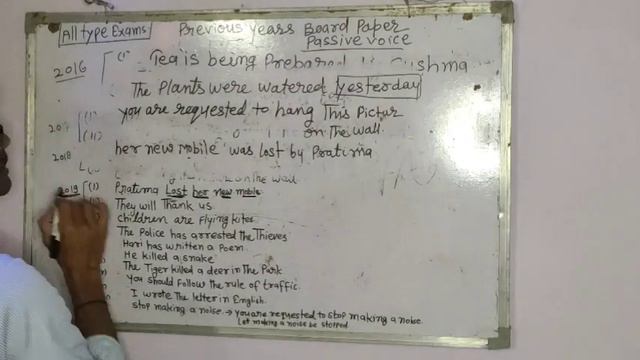 All type Exams
Previous years Board Paper
Passive voice
2016 (i) Tea is being Prepared Sushma
The Plants were watered yesterday
you are requested to hang This Pictur
(i)
(ii) on The wall.
2018 her new mobile was lost by Pratima
on The wall
2019 (i) Pratima Lost her new mobile
They will Thank us
children are flying kites
The Police has arrested the Thieves
Hari has written a Poem
He killed a snake
The Tiger killed a deer in The Park
You should follow the rule of traffic.
I wrote The letter in English.
Stop making a noise → you are requested to stop making a noise.
Let making a noise be stopped